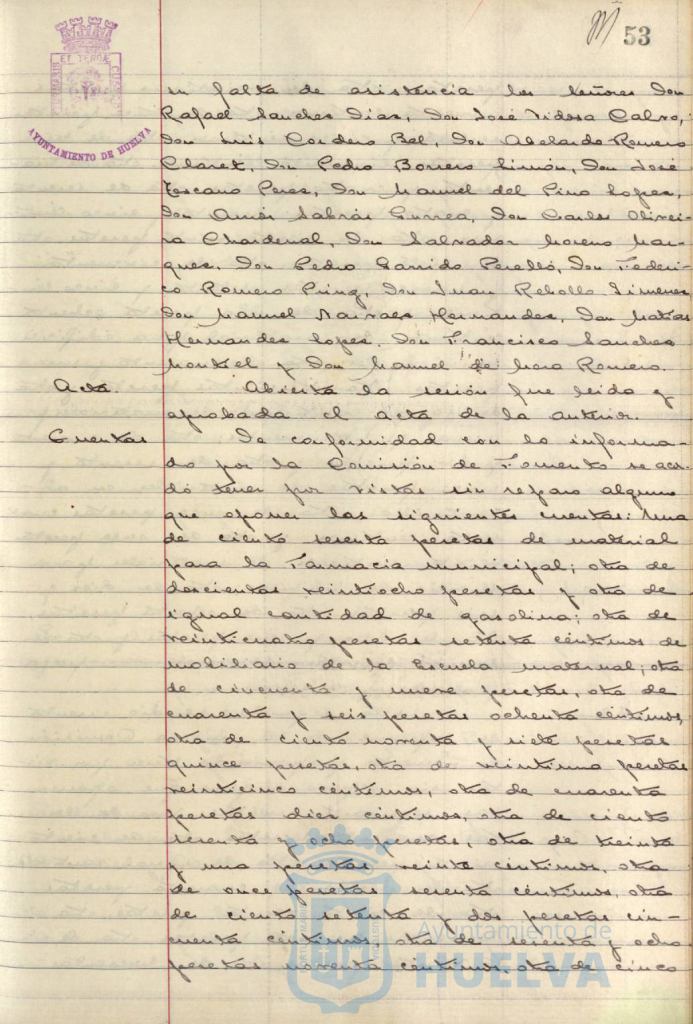 53
PORTUS MARIS ET TERRÆ CUSTODIA
AYUNTAMIENTO DE HUELVA
su falta de asistencia los señores Don
Rafael Sanchez Diaz, Don José Vidosa Calvo,
Don Luis Cordero Bel, Don Abelardo Romero
Claret, Don Pedro Borrero Limón, Don José
Toscano Perez, Don Manuel del Pino Lopez,
Don Amós Sabrás Gurrea, Don Carlos Olivei-
ra Chardenal, Don Salvador Moreno Mar-
quez, Don Pedro Garrido Perelló, Don Federi-
co Romero Puig, Don Juan Rebollo Jimenez,
Don Manuel Narvaez Hernandez, Don Matias
Hernandez Lopez, Don Francisco Sanchez
Montiel y Don Manuel de Mora Romero.
Acta. Abierta la sesión fue leida y
aprobada el acta de la anterior.
Cuentas De conformidad con lo informa-
do por la Comisión de Fomento se acor-
dó tener por vistas sin reparo alguno
que oponer las siguientes cuentas: Una
de ciento sesenta pesetas de material
para la Farmacia municipal; otra de
doscientas veintiocho pesetas y otra de
igual cantidad de gasolina; otra de
veinticuatro pesetas setenta céntimos de
mobiliario de la Escuela maternal; otra
de cincuenta y nueve pesetas, otra de
cuarenta y seis pesetas ochenta céntimos,
otra de ciento noventa y siete pesetas
quince pesetas, otra de veintiuna pesetas
veinticinco céntimos, otra de cuarenta
pesetas diez céntimos, otra de ciento
sesenta y ocho pesetas, otra de treinta
y una pesetas veinte céntimos, otra
de once pesetas sesenta céntimos, otra
de ciento setenta y dos pesetas cin-
cuenta céntimos, otra de sesenta y ocho
pesetas noventa céntimos, otra de cinco
Ayuntamiento de
HUELVA